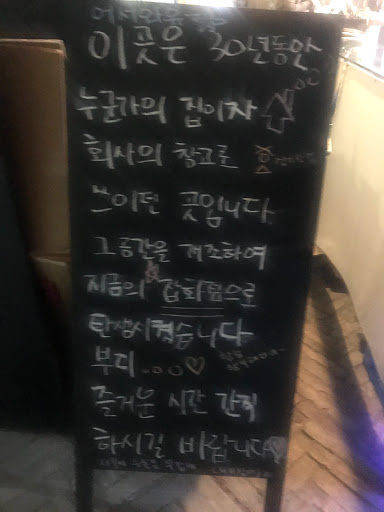 이곳은 30년동안
누군가의 집이자
회사의 창고로
쓰이던 곳입니다
그 공간을 개조하여
지금의 잡화점으로
탄생시켰습니다
부디...♡
즐거운 시간 간직
하시길 바랍니다